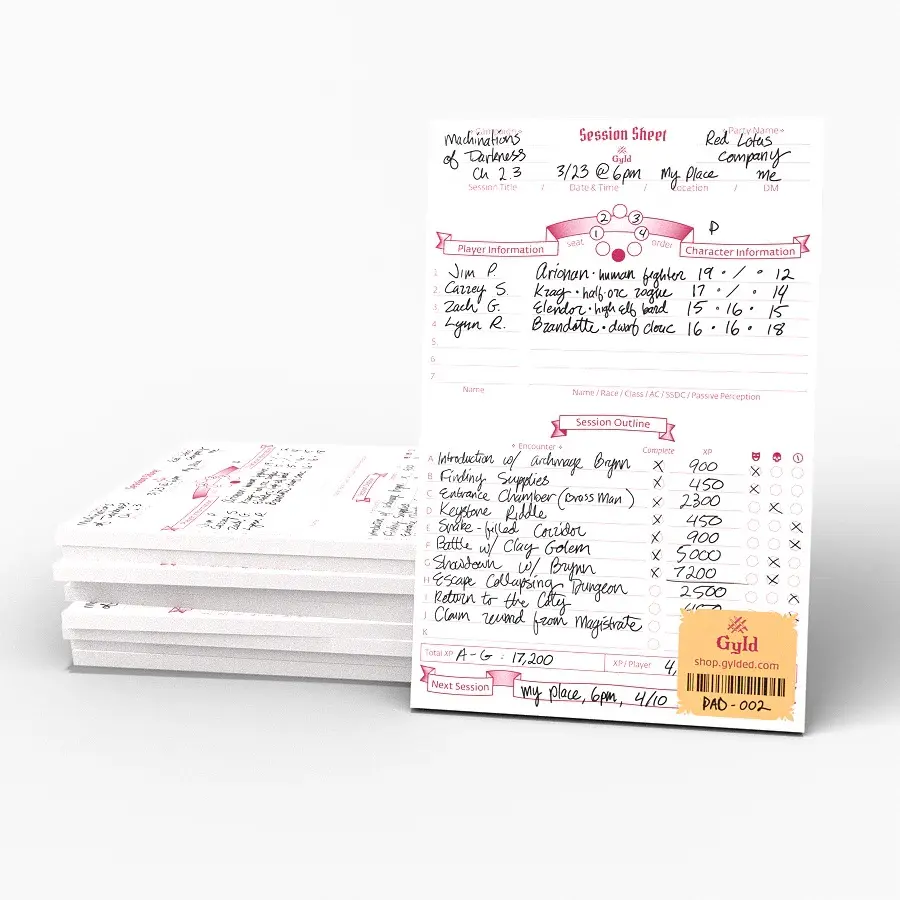 Campaign Session Sheet Party Name
Machinations Red Lotus
of Darkness Gyld Company
Ch 2.3 3/23 @ 6pm My Place me
Session Title / Date & Time / Location / DM
2 3
P
1 4
Player Information seat order Character Information
1 Jim P. Arionan • human fighter 19 • / • 12
2 Carrey S. Krag • half-orc rogue 17 • / • 14
3 Zach G. Elendor • high elf bard 15 • 16 • 15
4 Lynn R. Brandotte • dwarf cleric 16 • 16 • 18
5
6
7
Name Name / Race / Class / AC / SSDC / Passive Perception
Session Outline
Encounter Complete XP
A Introduction w/ archmage Brynn X 900 X
B Finding Supplies X 450 X
C Entrance Chamber (Brass Man) X 2300 X
D Keystone Riddle X 450 X
E Snake-filled Corridor X 900 X
F Battle w/ Clay Golem X 5000 X
G Showdown w/ Brynn X 7200 X
H Escape Collapsing Dungeon 2500 X
I Return to the City 450
J Claim reward from Magistrate
K
Total XP A-G : 17,200 XP / Player 4,
Next Session my place, 6pm, 4/10
Gyld
shop.gylded.com
PAD-002